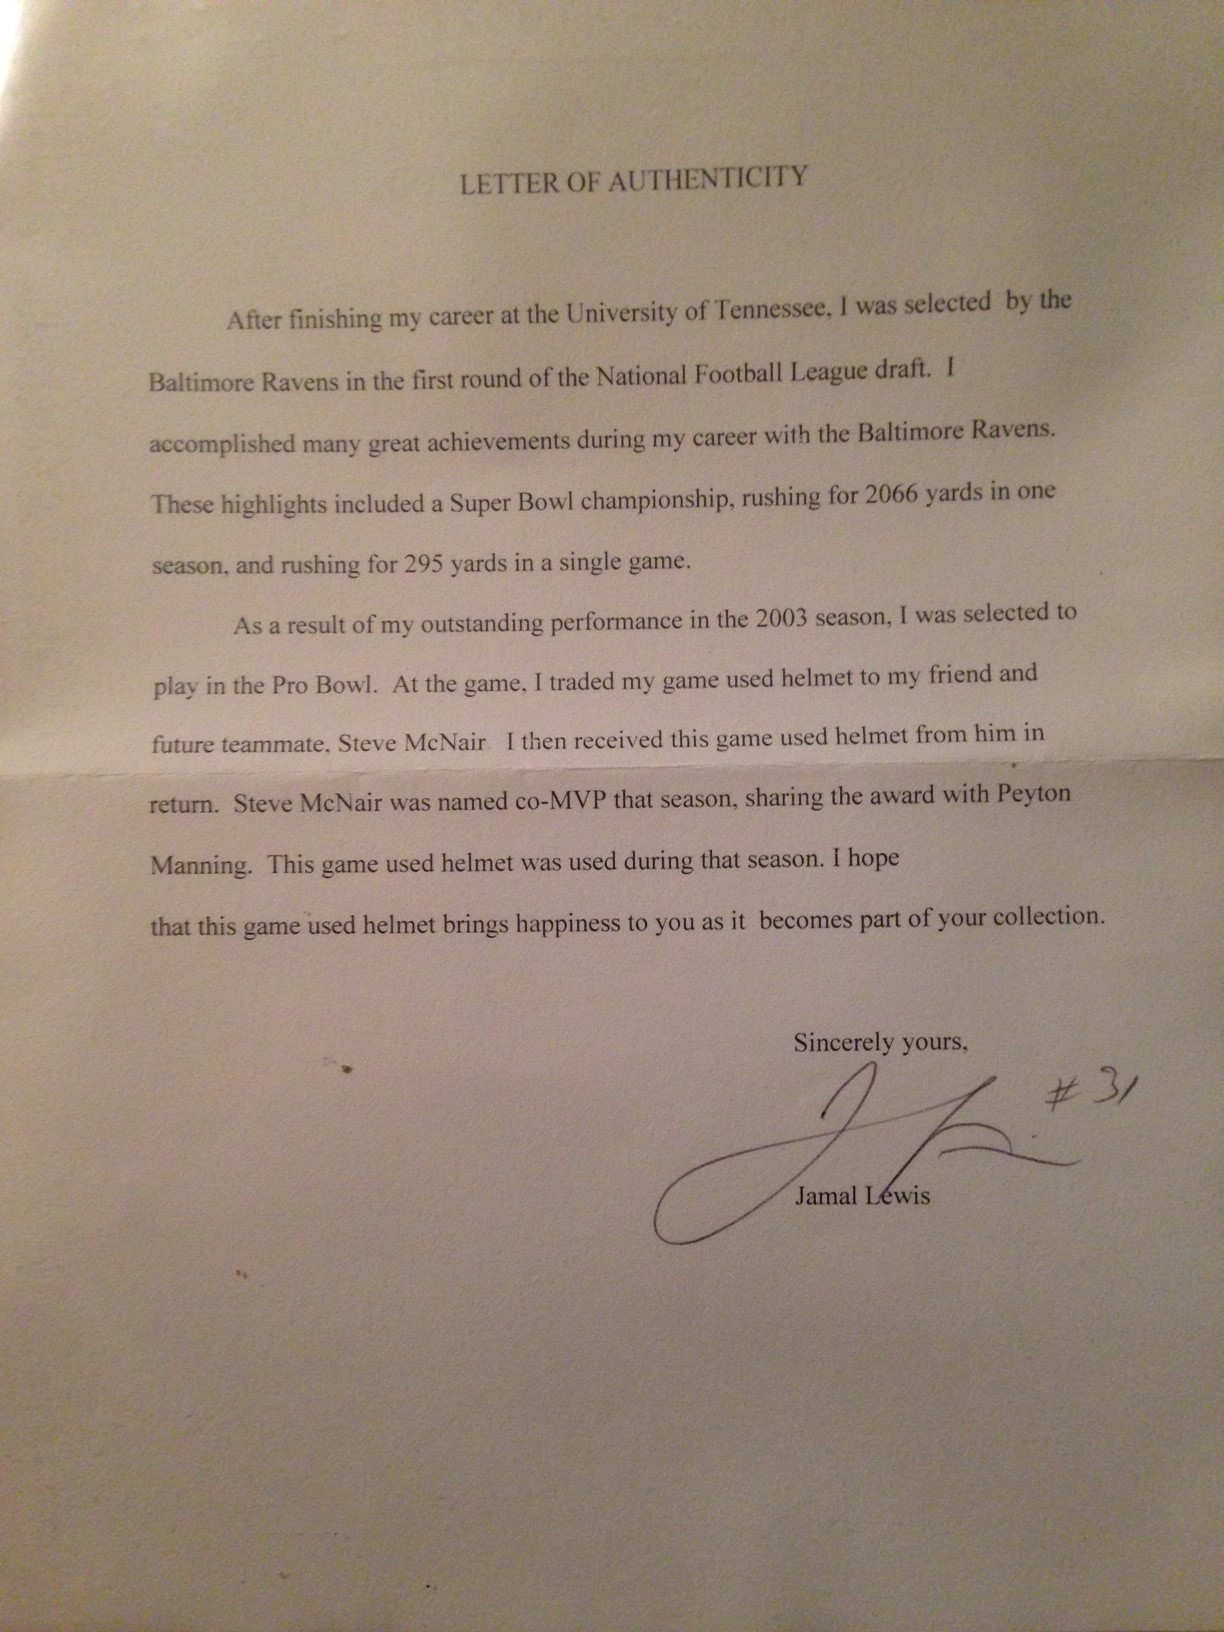 LETTER OF AUTHENTICITY
After finishing my career at the University of Tennessee, I was selected by the
Baltimore Ravens in the first round of the National Football League draft. I
accomplished many great achievements during my career with the Baltimore Ravens.
These highlights included a Super Bowl championship, rushing for 2066 yards in one
season, and rushing for 295 yards in a single game.
As a result of my outstanding performance in the 2003 season, I was selected to
play in the Pro Bowl. At the game, I traded my game used helmet to my friend and
future teammate, Steve McNair I then received this game used helmet from him in
return. Steve McNair was named co-MVP that season, sharing the award with Peyton
Manning. This game used helmet was used during that season. I hope
that this game used helmet brings happiness to you as it becomes part of your collection.
Sincerely yours,
#31
Jamal Lewis